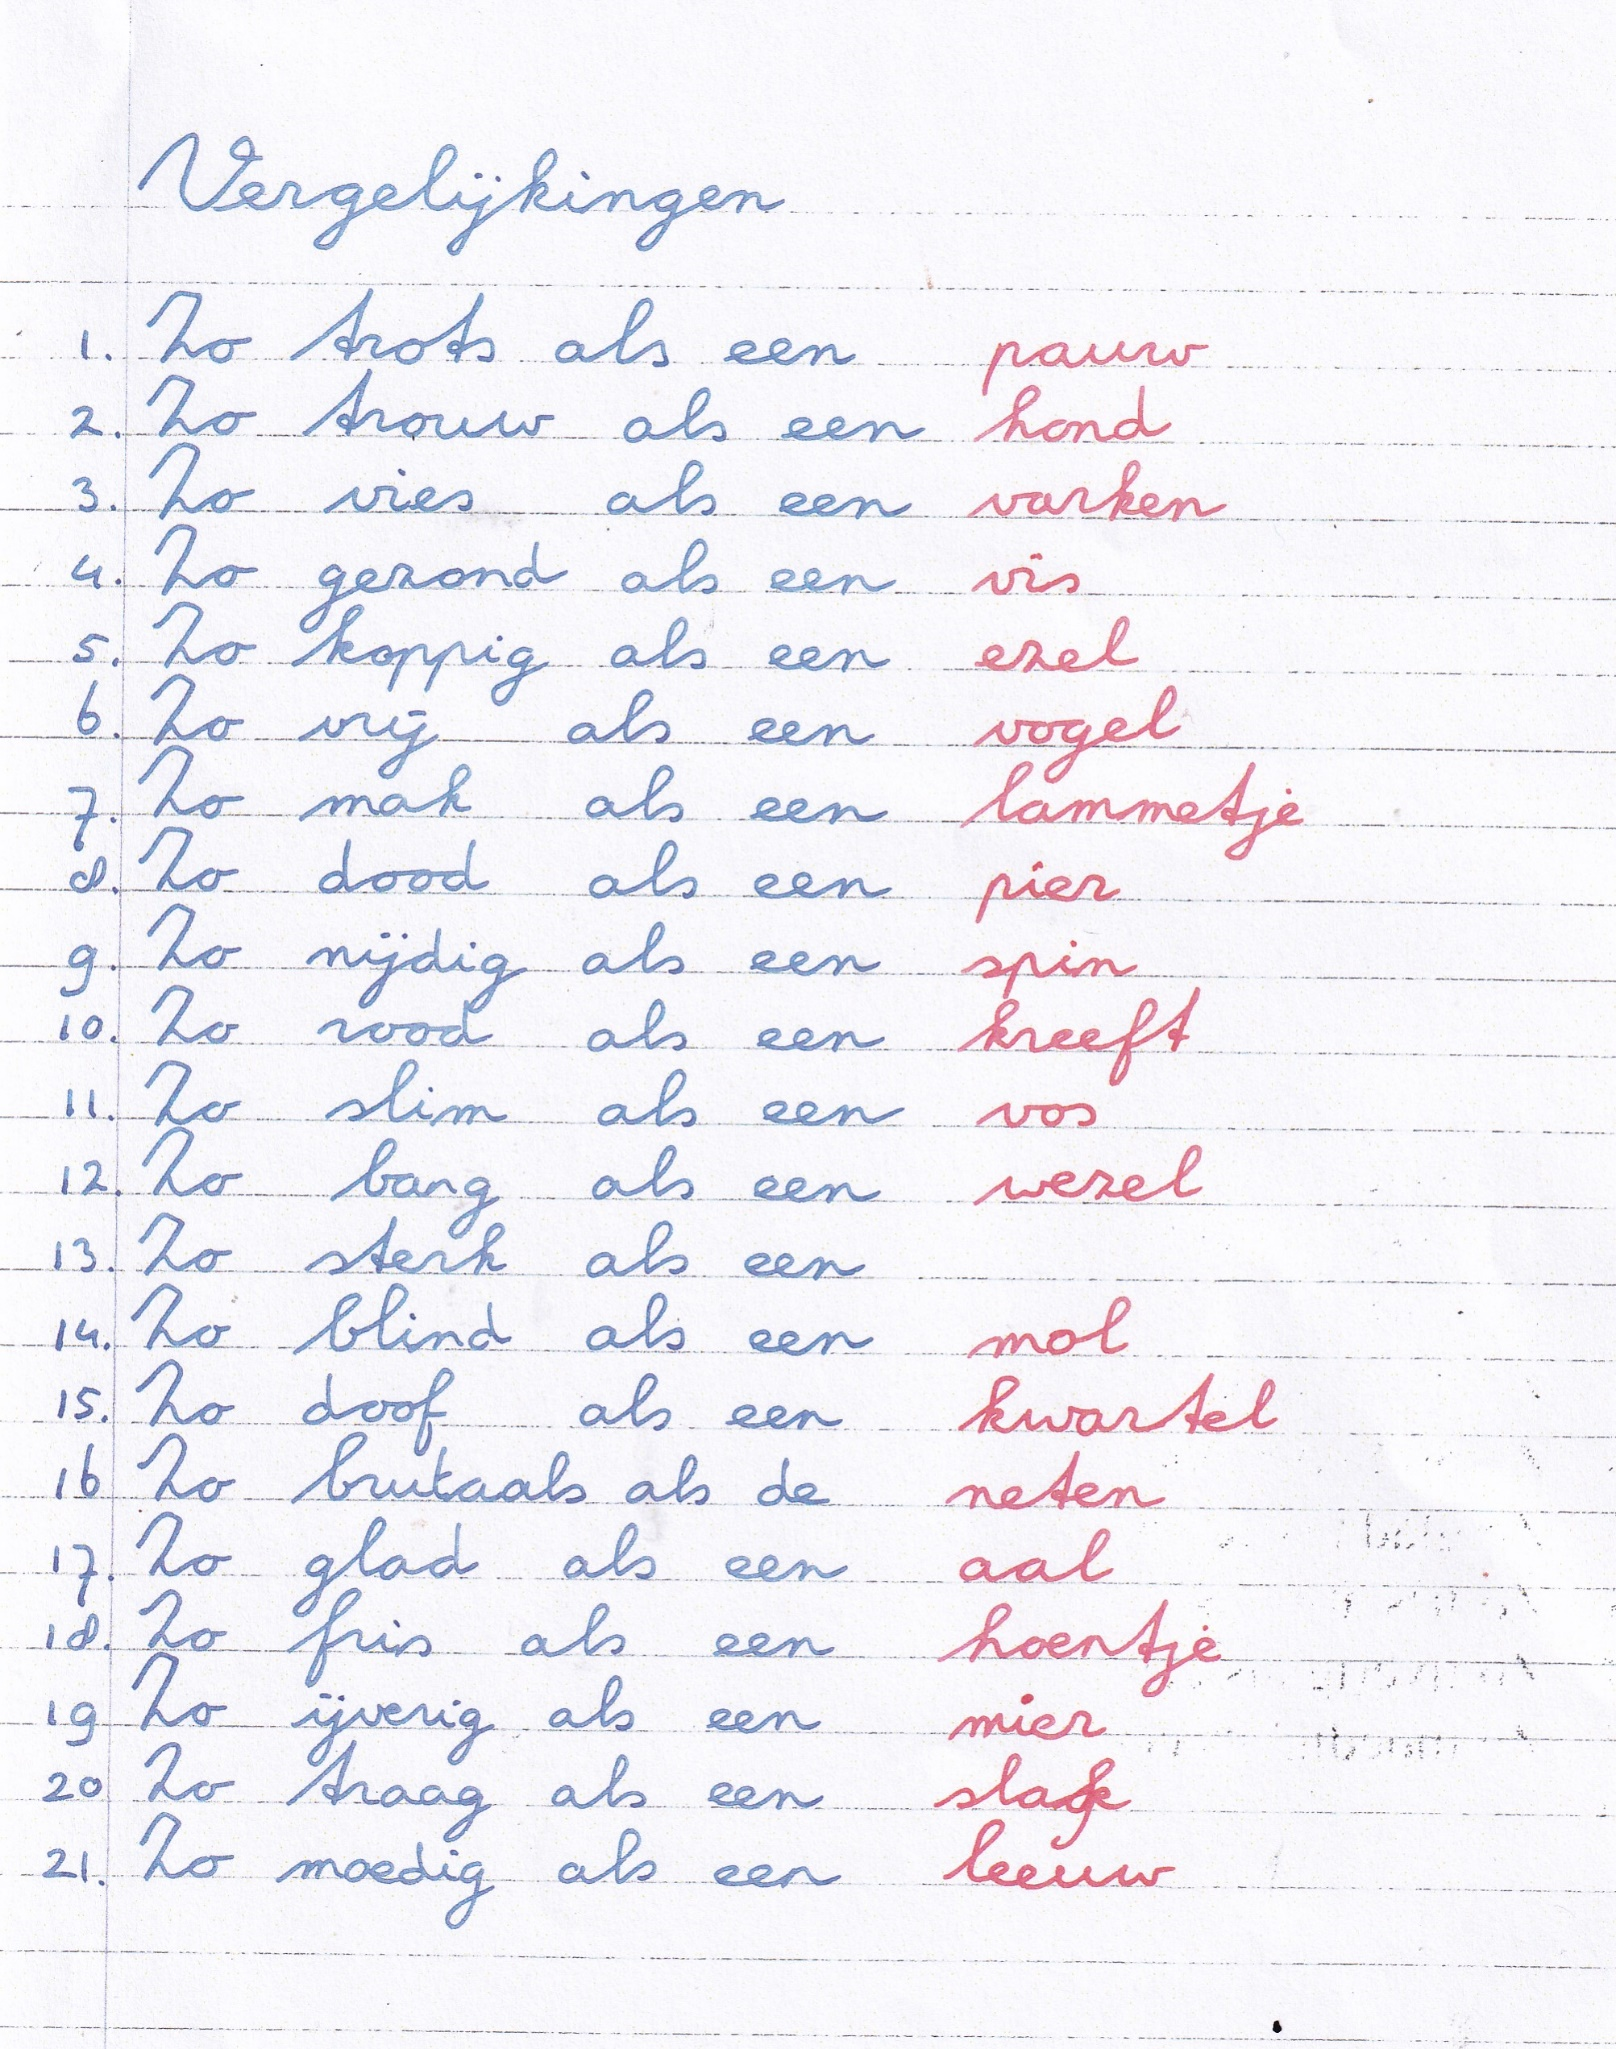 Vergelijkingen
1. Zo trots als een pauw
2. Zo trouw als een hond
3. Zo vies als een varken
4. Zo gezond als een vis
5. Zo koppig als een ezel
6. Zo vrij als een vogel
7. Zo mak als een lammetje
8. Zo dood als een pier
9. Zo nijdig als een spin
10. Zo rood als een kreeft
11. Zo slim als een vos
12. Zo bang als een wezel
13. Zo sterk als een
14. Zo blind als een mol
15. Zo doof als een kwartel
16 Zo brutaals als de neten
17. Zo glad als een aal
18. Zo fris als een hoentje
19 Zo ijverig als een mier
20 Zo traag als een slak
21. Zo moedig als een leeuw